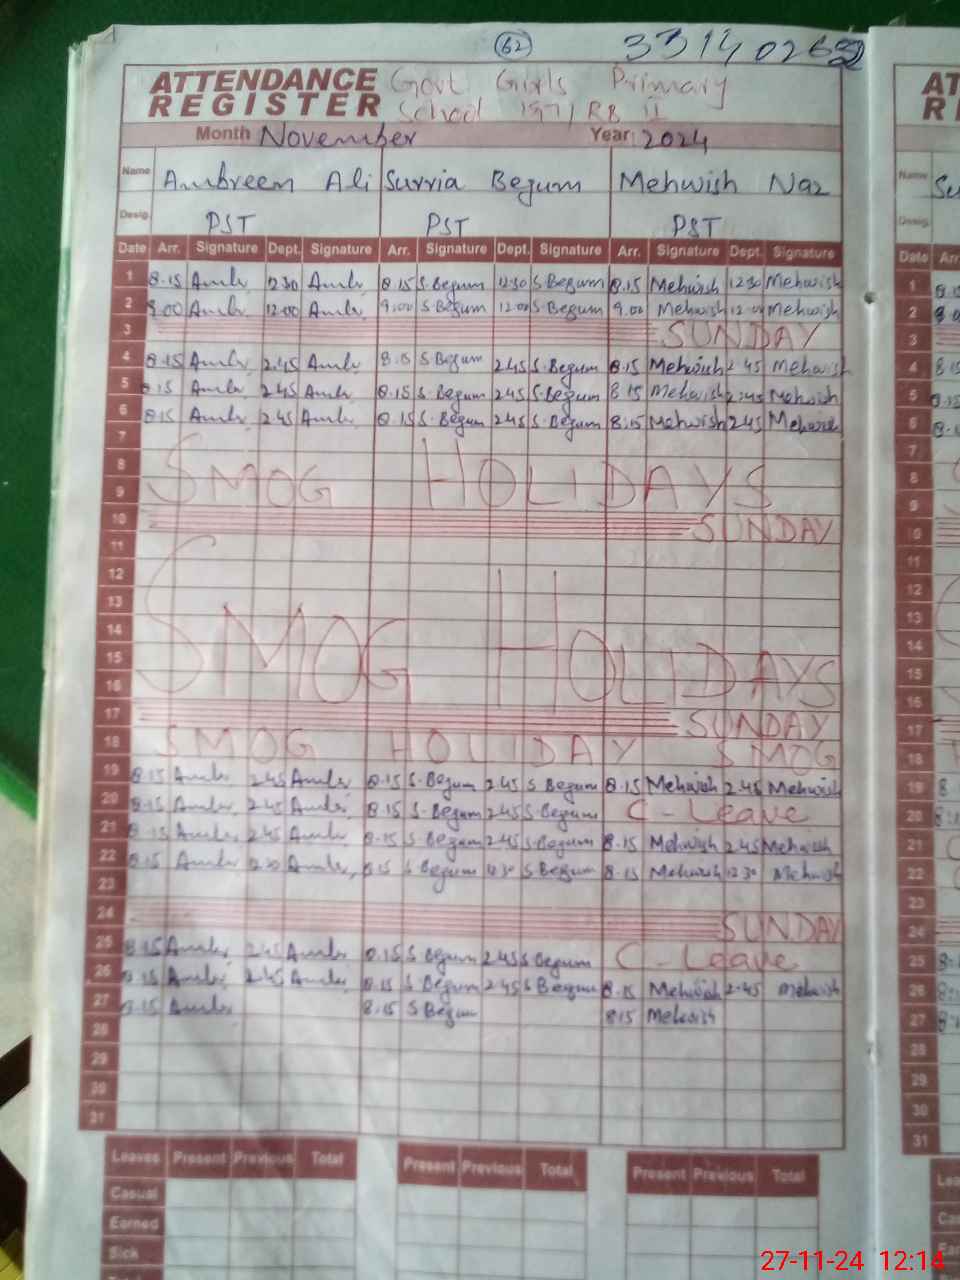 62 33140262
ATTENDANCE REGISTER Govt Girls Primary
School 197/RB II
Month November Year: 2024
Name Ambreen Ali Surria Begum Mehwish Naz
Desig. PST PST PST
Date Arr. Signature Dept. Signature Arr. Signature Dept. Signature Arr. Signature Dept. Signature
1 8.15 Amb 12 30 Amb 8.15 S.Begum 12:30 S Begum 8.15 Mehwish 12 30 Mehwish
2 9.00 Amb 12.00 Amb 9.00 S Begum 12.00 S Begum 9.00 Mehwish 12.00 Mehwish
3 SUNDAY
4 8.15 Amb 2.45 Amb 8.15 S Begum 2.45 S.Begum 8.15 Mehwish 2 45 Mehwish
5 8.15 Amb 2.45 Amb 8.15 S.Begum 2.45 S.Begum 8 15 Mehwish 2:45 Mehwish
6 8.15 Amb 2.45 Amb 8.15 S.Begum 2.45 S.Begum 8:15 Mehwish 2.45 Mehwish
7
8 SMOG HOLIDAYS
9
10 SUNDAY
11
12
13
14 SMOG HOLIDAYS
15
16
17 SUNDAY
18 SMOG HOLIDAY SMOG
19 8.15 Amb 2.45 Amb 8.15 S.Begum 2.45 S Begum 8.15 Mehwish 2.45 Mehwish
20 8.15 Amb 2.45 Amb 8.15 S.Begum 2.45 S.Begum C - Leave
21 8.15 Amb 2.45 Amb 8.15 S.Begum 2.45 S.Begum 8.15 Mehwish 2.45 Mehwish
22 8.15 Amb 12.30 Amb 8.15 S Begum 12 30 S Begum 8.15 Mehwish 12 30 Mehwish
23
24 SUNDAY
25 8.15 Amb 2.45 Amb 8.15 S Begum 2.45 S.Begum C - Leave
26 8.15 Amb 2.45 Amb 8.15 S Begum 2.45 S Begum 8.15 Mehwish 2.45 Mehwish
27 8.15 Amb 8.15 S Begum 8.15 Mehwish
28
29
30
31
Leaves Present Previous Total Present Previous Total Present Previous Total
Casual
Earned
Sick
27-11-24 12:14